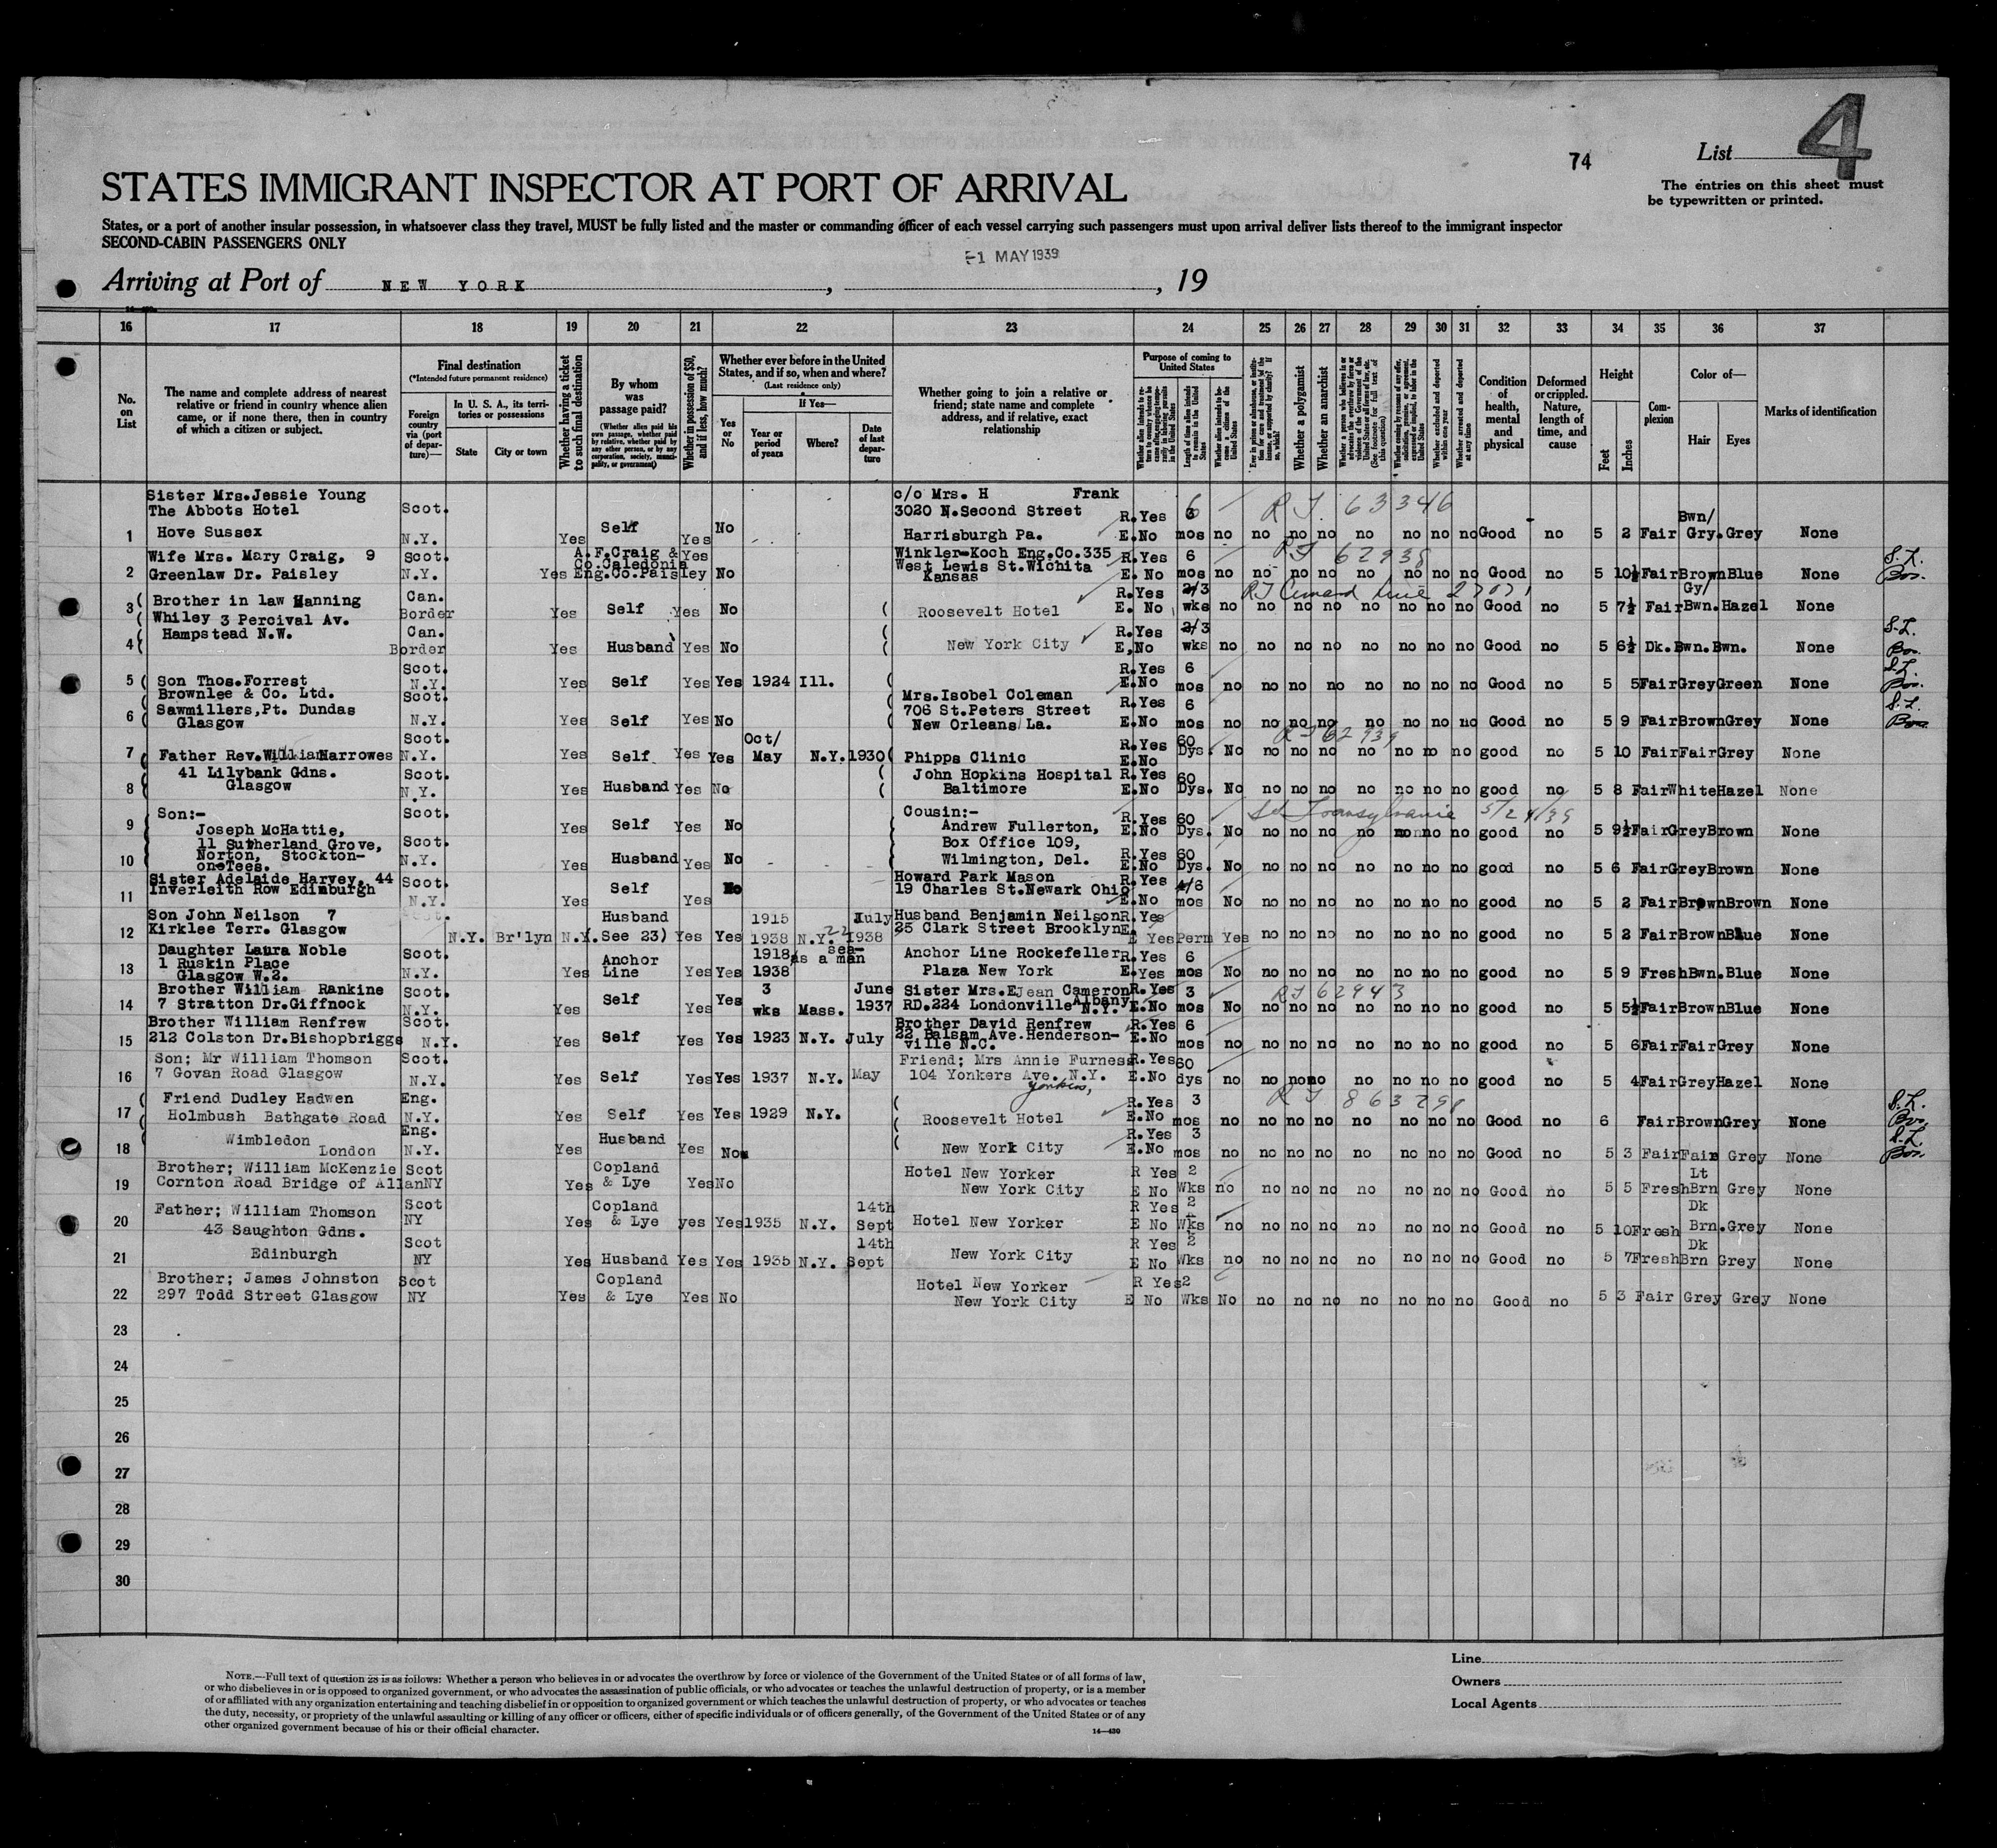 4
74
List
The entries on this sheet must
be typewritten or printed.
STATES IMMIGRANT INSPECTOR AT PORT OF ARRIVAL
States, or a port of another insular possession, in whatsoever class they travel, MUST be fully listed and the master or commanding officer of each vessel carrying such passengers must upon arrival deliver lists thereof to the immigrant inspector
SECOND-CABIN PASSENGERS ONLY
-1 MAY 1939
Arriving at Port of NEW YORK , , 19
16 17 18 19 20 21 22 23 24 25 26 27 28 29 30 31 32 33 34 35 36 37
No. on List
The name and complete address of nearest relative or friend in country whence alien came, or if none there, then in country of which a citizen or subject.
Final destination
(*Intended future permanent residence)
Foreign country via (port of departure)—
In U. S. A., its territories or possessions
State
City or town
Whether having a ticket to such final destination
By whom was passage paid?
(Whether alien paid his own passage, whether paid by relative, whether paid by any other person, or by any corporation, society, municipality, or government)
Whether in possession of $50, and if less, how much?
Whether ever before in the United States, and if so, when and where?
(Last residence only)
Yes or No
If Yes—
Year or period of years
Where?
Date of last departure
Whether going to join a relative or friend; state name and complete address, and if relative, exact relationship
Purpose of coming to United States
Whether a polygamist
Whether an anarchist
Condition of health, mental and physical
Deformed or crippled. Nature, length of time, and cause
Height
Feet
Inches
Complexion
Color of—
Hair
Eyes
Marks of identification
1 Sister Mrs.Jessie Young The Abbots Hotel Hove Sussex Scot. N.Y. Yes Self Yes No c/o Mrs. H Frank 3020 N.Second Street Harrisburgh Pa. R.Yes E.No 6 mos no no no no no no no no Good no 5 2 Fair Bwn/Gry. Grey None
RT. 63346
2 Wife Mrs. Mary Craig, 9 Greenlaw Dr. Paisley Scot. N.Y. Yes A.F.Craig & Co.Caledonia Eng.Co.Paisley Yes No Winkler-Koch Eng.Co.335 West Lewis St.Wichita Kansas R.Yes E. No 6 mos no no no no no no no no Good no 5 10½ Fair Brown Blue None
RT 62938
3 Brother in law Manning Whiley 3 Percival Av. Hampstead N.W. Can. Border Yes Self Yes No Roosevelt Hotel R.Yes E. No 2/3 wks no no no no no no no no Good no 5 7½ Fair Gy/Bwn. Hazel None
4 Can. Border Yes Husband Yes No New York City R.Yes E,No 2/3 wks no no no no no no no no Good no 5 6½ Dk. Bwn. Bwn. None
5 Son Thos.Forrest Brownlee & Co. Ltd. Scot. N.Y. Yes Self Yes Yes 1924 Ill. R.Yes E.No 6 mos no no no no no no no no Good no 5 5 Fair Grey Green None
6 Sawmillers,Pt. Dundas Glasgow Scot. N.Y. Yes Self Yes No Mrs.Isobel Coleman 706 St.Peters Street New Orleans La. R.Yes E.No 6 mos no no no no no no no no Good no 5 9 Fair Brown Grey None
7 Father Rev.William Marrowes Scot. N.Y. Yes Self Yes Yes Oct/May N.Y. 1930 Phipps Clinic R.Yes E.No 60 Dys. No no no no no no no no good no 5 10 Fair Fair Grey None
RT 62939
8 41 Lilybank Gdns. Glasgow Scot. N.Y. Yes Husband Yes No John Hopkins Hospital Baltimore R.Yes E.No 60 Dys. No no no no no no no no good no 5 8 Fair White Hazel None
9 Son:- Joseph McHattie, 11 Sutherland Grove, Scot. Yes Self Yes No Cousin:- Andrew Fullerton, Box Office 109, R.Yes E.No 60 Dys. No no no no no no no no good no 5 9½ Fair Grey Brown None
Transylvania 5/24/39
10 Norton, Stockton-on-Tees. Scot. N.Y. Yes Husband Yes No Wilmington, Del. R.Yes E.No 60 Dys. No no no no no no no no good no 5 6 Fair Grey Brown None
11 Sister Adelaide Harvey, 44 Inverleith Row Edinburgh Scot. N.Y. Yes Self Yes No Howard Park Mason 19 Charles St.Newark Ohio R.Yes E.No 4/6 mos No no no no no no no no good no 5 2 Fair Brown Brown None
12 Son John Neilson 7 Kirklee Terr. Glasgow N.Y. Br'lyn N.Y. Husband (See 23) Yes Yes 1915 1938 N.Y. July 1938 Husband Benjamin Neilson 25 Clark Street Brooklyn R.Yes E Yes Perm Yes no no no no no no no good no 5 2 Fair Brown Blue None
13 Daughter Laura Noble 1 Ruskin Place Glasgow W.2. Scot. N.Y. Yes Anchor Line Yes Yes 1918 1938 as a sea-man Anchor Line Rockefeller Plaza New York R.Yes E.Yes 6 mos No no no no no no no no good no 5 9 Fresh Bwn. Blue None
14 Brother William Rankine 7 Stratton Dr.Giffnock Scot. N.Y. Yes Self Yes Yes 3 wks Mass. June 1937 Sister Mrs.E Jean Cameron RD.224 Londonville Albany N.Y. R.Yes E.No 3 mos No no no no no no no no good no 5 5½ Fair Brown Blue None
RT 62943
15 Brother William Renfrew 212 Colston Dr.Bishopbriggs Scot. N.Y. Yes Self Yes Yes 1923 N.Y. July Brother David Renfrew 22 Balsam Ave.Henderson-ville N.C. R.Yes E.No 6 mos no no no no no no no no good no 5 6 Fair Fair Grey None
16 Son; Mr William Thomson 7 Govan Road Glasgow Scot. N.Y. Yes Self Yes Yes 1937 N.Y. May Friend; Mrs Annie Furness 104 Yonkers Ave. N.Y. Yonkers, R.Yes E.No 60 dys no no no no no no no no good no 5 4 Fair Grey Hazel None
17 Friend Dudley Hadwen Holmbush Bathgate Road Eng. N.Y. Yes Self Yes Yes 1929 N.Y. Roosevelt Hotel R.Yes E.No 3 mos no no no no no no no no Good no 6 Fair Brown Grey None
18 Wimbledon London Eng. N.Y. Yes Husband Yes No New York City R.Yes E.No 3 mos no no no no no no no no Good no 5 3 Fair Fair Grey None
19 Brother; William McKenzie Cornton Road Bridge of Allan Scot NY Yes Copland & Lye Yes No Hotel New Yorker New York City R Yes E No 2 Wks no no no no no no no no Good no 5 5 Fresh Lt Brn Grey None
20 Father; William Thomson 43 Saughton Gdns. Scot NY Yes Copland & Lye yes Yes 1935 N.Y. 14th Sept Hotel New Yorker R Yes E No 2 Wks no no no no no no no no Good no 5 10 Fresh Dk Brn. Grey None
21 Edinburgh Scot NY Yes Husband Yes Yes 1935 N.Y. 14th Sept New York City R Yes E No 2 Wks no no no no no no no no Good no 5 7 Fresh Dk Brn Grey None
22 Brother; James Johnston 297 Todd Street Glasgow Scot NY Yes Copland & Lye Yes No Hotel New Yorker New York City R Yes E No 2 Wks No no no no no no no no Good no 5 3 Fair Grey Grey None
23
24
25
26
27
28
29
30
NOTE.—Full text of question 28 is as follows: Whether a person who believes in or advocates the overthrow by force or violence of the Government of the United States or of all forms of law,
or who disbelieves in or is opposed to organized government, or who advocates the assassination of public officials, or who advocates or teaches the unlawful destruction of property, or is a member
of or affiliated with any organization entertaining and teaching disbelief in or opposition to organized government or which teaches the unlawful destruction of property, or who advocates or teaches
the duty, necessity, or propriety of the unlawful assaulting or killing of any officer or officers, either of specific individuals or of officers generally, of the Government of the United States or of any
other organized government because of his or their official character.
14—430
Line
Owners
Local Agents